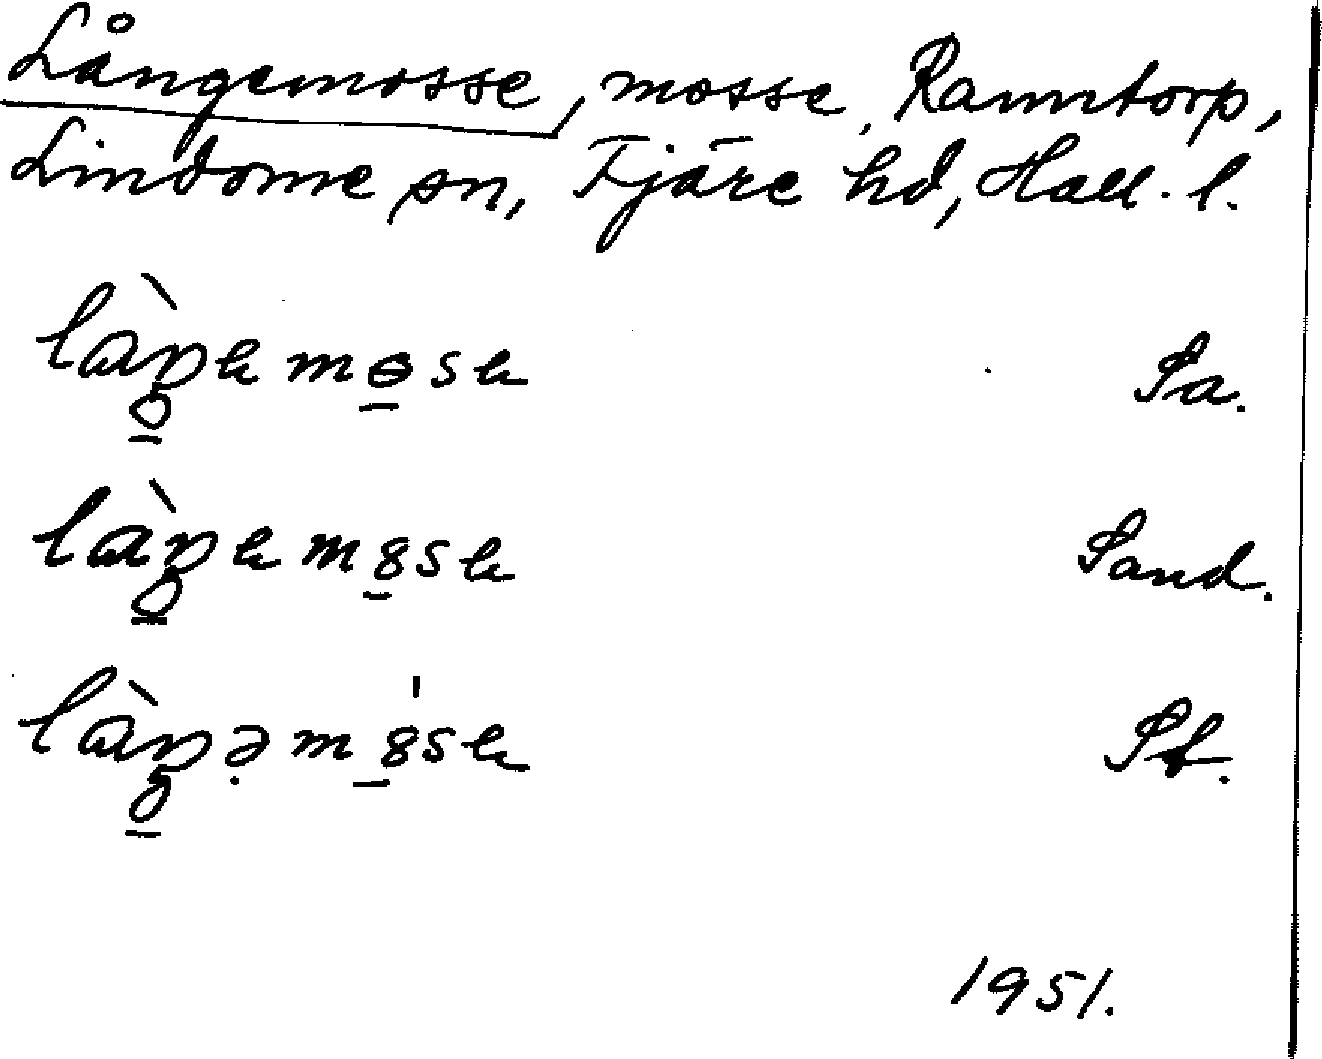 Långemosse, mosse, Ramntorp,
Lindome sn, Fjäre hd, Hall. l.
là̠ŋemɵ̠se Sa.
là̠ŋem8̠se Sand.
là̠ŋə̣m8̠̍se St.
1951.